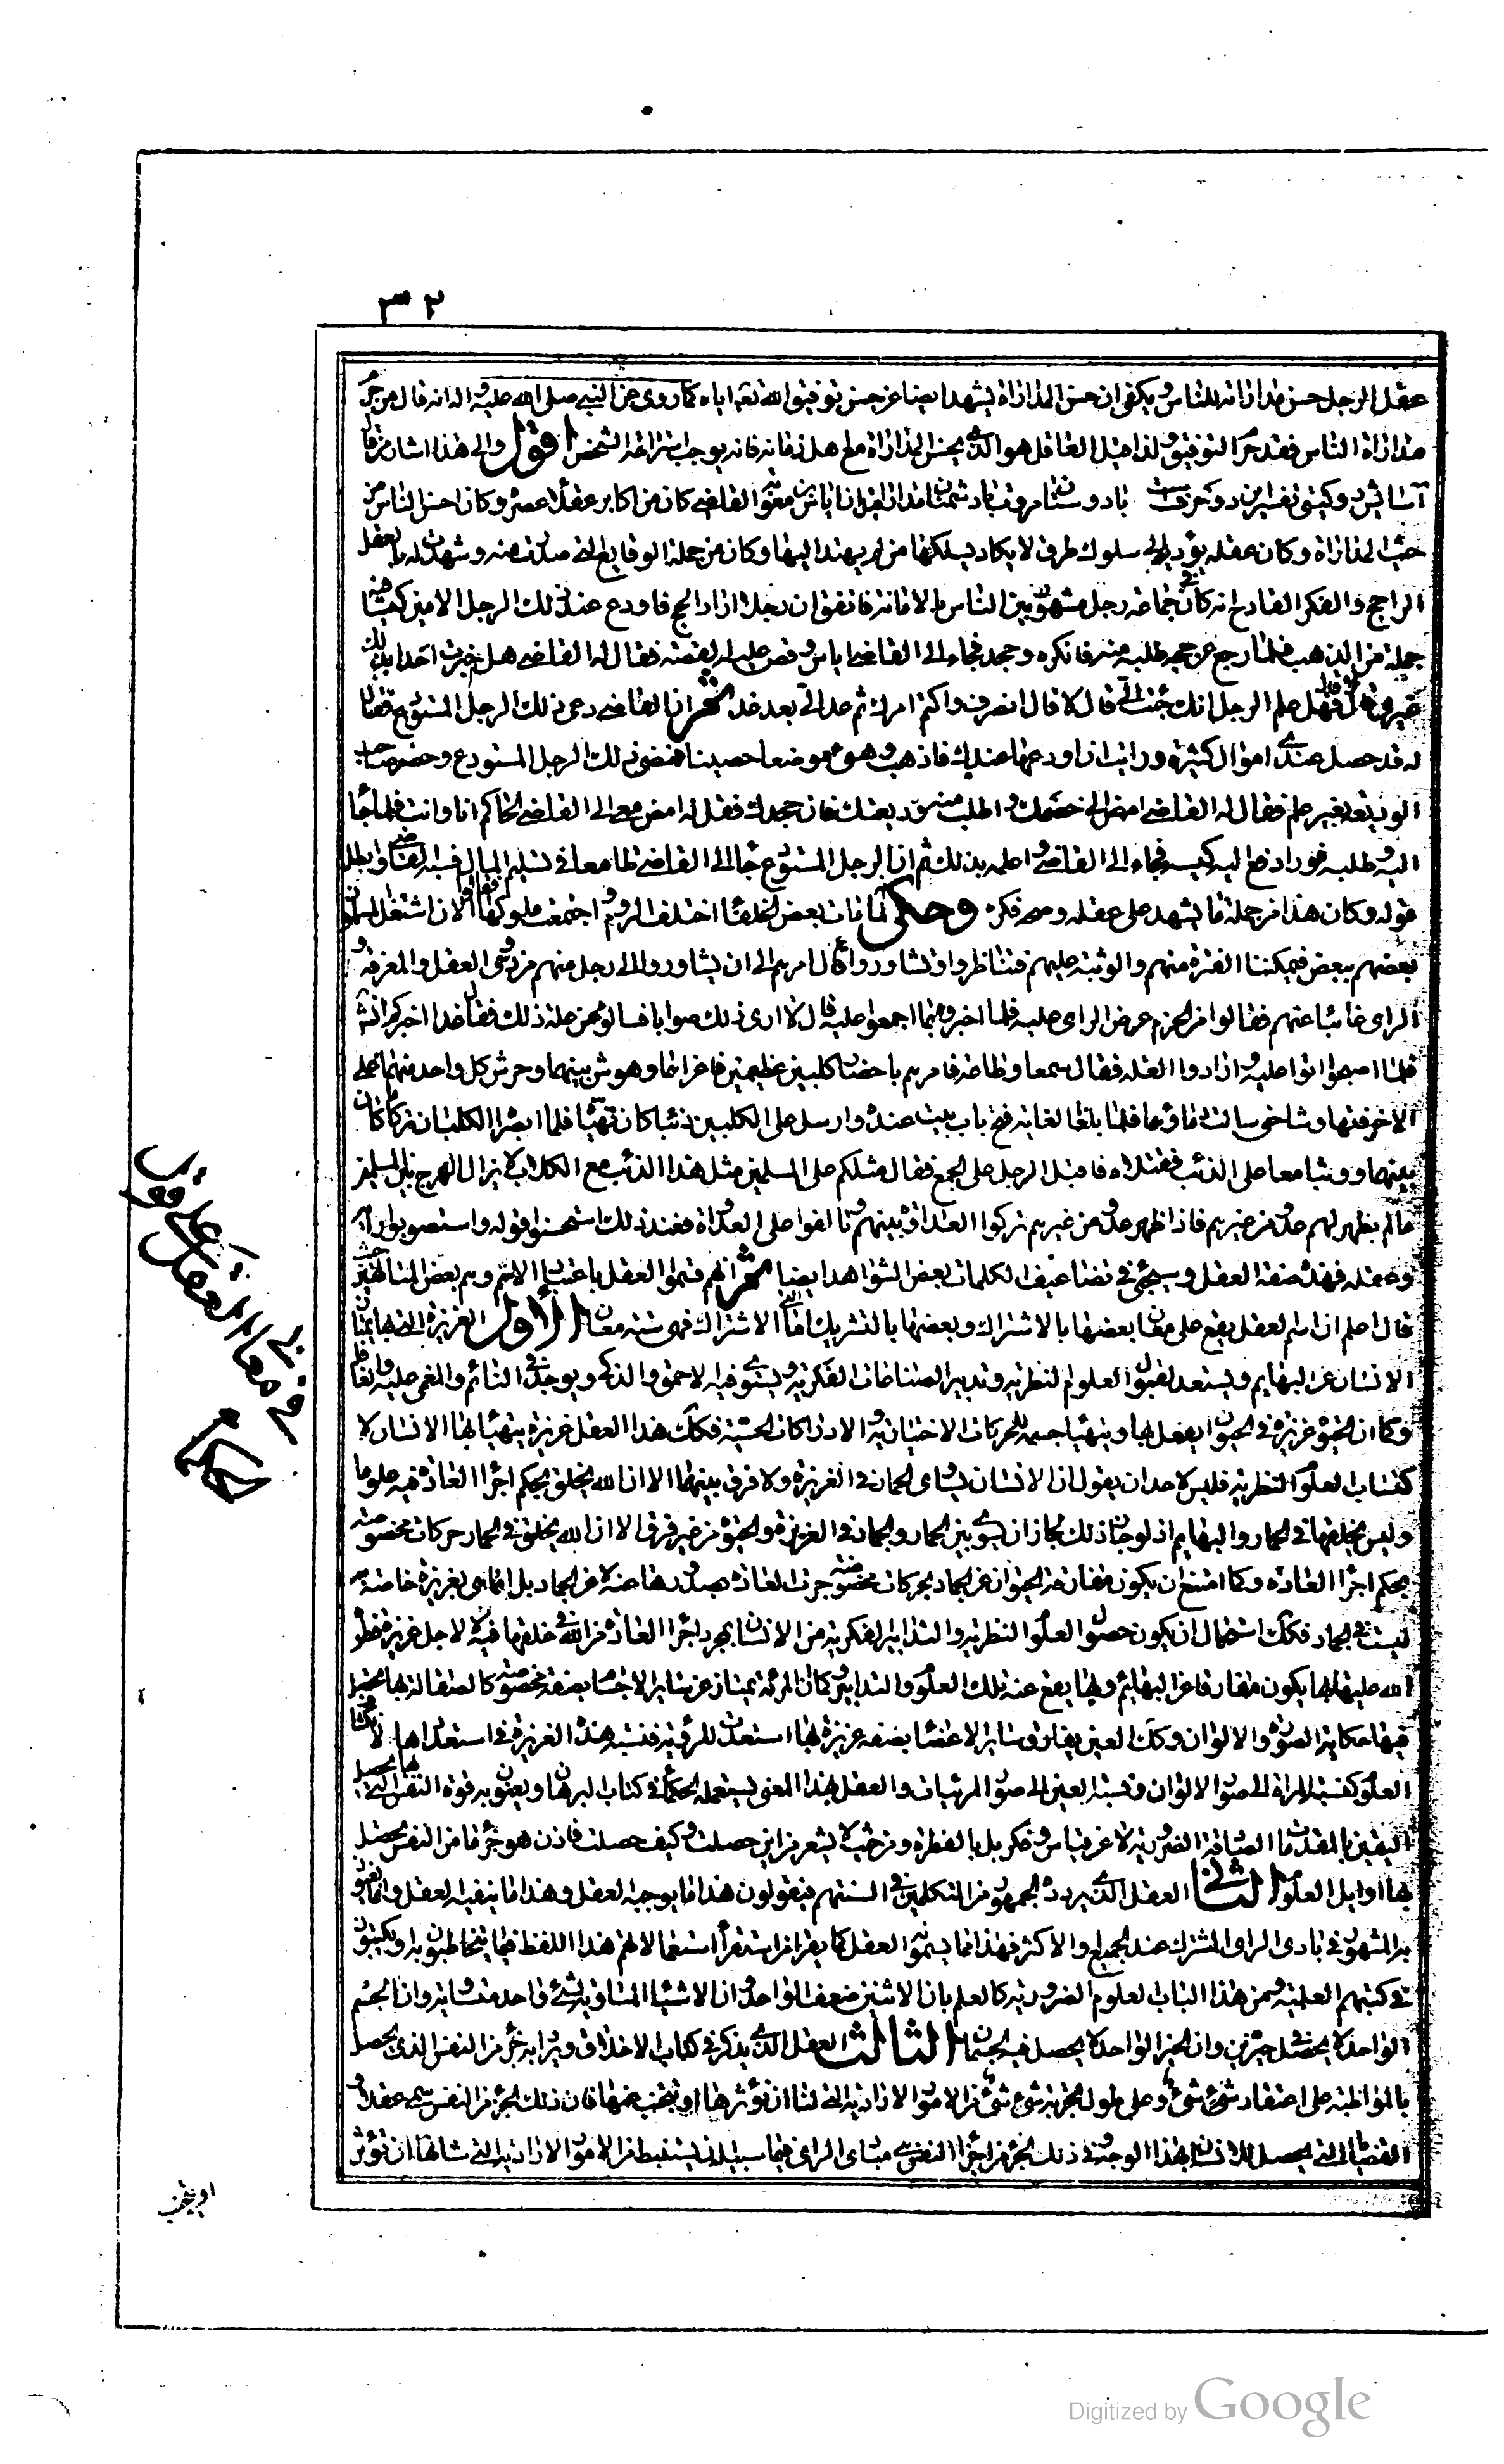 ٣٢
عقل الرجل حسن مداراته للناس ويكفى ان حسن المداراة يشهد ايضا عن حسن توفيق الله تعه اياه كما روى عن النبي صلى الله عليه واله انه قال من حرم
مداراة الناس فقد حرم التوفيق ولذا قيل العاقل هو الذي يحسن المداراة مع اهل زمانه فانه يوجب استراحة الشخص اقول والى هذا اشار من قال
آسايش دو كيتى تفسير اين دو حرفست با دوستان مروت با دشمنان مدارا قيل ان اياس بن معوية القاضى كان من اكابر عقلاء عصره وكان احسن الناس من
حيث المداراة وكان عقله يؤديه الى سلوك طرق لا يكاد يسلكها من لم يهتد اليها وكان من جملة الوقايع التى صدرت منه وشهدت له بالعقل
الراجح والفكر القادح انه كان في جماعة رجل مشهور بين الناس بالامانة فاتفق ان رجلا اراد الحج فاودع عند ذلك الرجل الامين كيسا فيه
جملة من الذهب فلما رجع عن حجه طلبه منه فانكره وجحد فجاء الى القاضى اياس وقص عليه القصة فقال له القاضى هل خبرت احدا بذلك
غيرى قال لا قال فهل علم الرجل انك جئت الي قال لا قال انصرف واكتم امرك ثم عد الي بعد غد ثم ان القاضى دعى ذلك الرجل المستودع فقال
له قد حصل عندي اموال كثيرة ورايت ان اودعها عندك فاذهب وهيئ موضعا حصينا فمضى ذلك الرجل المستودع وحضر صاحب
الوديعة بغير علم فقال له القاضى امض الى خصمك واطلب منه وديعتك فان جحدك فقل له امض معى الى القاضى الحاكم انا وانت فلما جاء
اليه وطلبه فورا دفع اليه كيسه فجاء الى القاضى واعلمه بذلك ثم ان الرجل المستودع جاء الى القاضى طامعا في تسليم المال فسبه القاضى وابطل
قوله وكان هذا من جملة ما يشهد على عقله وصحة فكره وحكى لما مات بعض الخلفاء اختلف الروم واجتمعت ملوكها فقالوا الان اشتغل المسلمون
بعضهم ببعض فيمكننا الغرة منهم والوثبة عليهم فتناظروا وتشاوروا قال امرهم الى ان يشاوروا الى رجل منهم من ذوى العقل والمعرفة و
الراى غائبا عنهم فقالوا من الحزم عرض الراى عليه فلما اخبروه بما اجمعوا عليه قال لا ارى ذلك صوابا فسالوه عن علة ذلك فقال غدا اخبركم انش
فلما اصبحوا اتوا عليه وارادوا العلة فقال سمعا وطاعة فامرهم باحضار كلبين عظيمين فاغراهما وهوش بينهما وحرش كل واحد منهما على
الاخر فتهارشا حتى سالت دماؤهما فلما بلغا الغاية فتح باب بيت عنده وارسل على الكلبين ذئبا كان تهيئا فلما ابصرا الكلبان تركا ما كان
بينهما ووثبا معا على الذئب فقتلاه فاقبل الرجل على الجمع فقال مثلكم على المسلمين مثل هذا الذئب مع الكلاب لا يزال الهرج بين المسلمين
ما لم يظهر لهم عدو من غيرهم فاذا ظهر عدو من غيرهم تركوا العداوة بينهم وتالفوا على العداوة فعند ذلك استحسنوا قوله واستصوبوا رايه
وعقله فهذه صفة العقل وسيجئ في تضاعيف الكلمات بعض الشواهد ايضا ثم انهم قسموا العقل باعتبار الاسم وهم بعض المتالهين حيث
قال اعلم ان اسم العقل يقع على معان بعضها بالاشتراك وبعضها بالتشريك اما التى بالاشتراك فهى ستة معان الاول الغريزة التى بها يمتاز
الانسان عن البهايم ويستعد لقبول العلوم النظرية وتدبير الصناعات الفكرية ويستوى فيه الاحمق والذكى ويوجد في النائم والمغمى عليه والغافل
وكما ان الحيوة غريزة في الحيوان يفعل بها ويتهيا جسمه للحركات الاختيارية والادراكات الحسية فكك هذا العقل غريزة يتهيا بها الانسان لا
كتساب العلوم النظرية فليس لاحد ان يقول ان الانسان يساوى الحمار في الغريزة ولا فرق بينهما الا ان الله يخلق بحكم اجراء العادة فيه علوما
وليس يخلقها في الحمار والبهايم اذ لو جاز ذلك لجاز ان يسوى بين الحمار والجماد في الغريزة والحيوة من غير فرق الا ان الله يخلق في الحمار حركات مخصوصة
بحكم اجراء العادة وكما امتنع ان يكون مفارقة الحيوان عن الجماد بحركات مخصوصة جرت العادة بصدورها عنه لا عن الجماد بل انما هى بغريزة خاصة به
ليست في الجماد فكك استحال ان يكون حصول العلوم النظرية والتدابير الفكرية من الانسان بمجرد اجراء العادة من الله في خلقها فيه لا لاجل غريزة فطره
الله عليها بها يكون مفارقا عن البهايم وبها يقع عنه تلك العلوم والتدابير وكما ان المرئة تمتاز عن ساير الاجسام بصفة مخصوصة كالصقالة بها يحصل
فيها حكاية الصور والالوان وكك العين يفارق ساير الاعضاء بصفة غريزة بها استعدت للرؤية فنسبة هذه الغريزة في استعدادها لانكشاف
العلوم كنسبة المراة الى صور الالوان ونسبة العين الى صور المرئيات والعقل بهذا المعنى يستعمله الحكماء في كتاب البرهان ويعنون به قوة النفس التى بها يحصل
اليقين بالمقدمات الصادقة الضرورية لا عن قياس وفكر بل بالفطرة ومن حيث لا يشعر من اين حصلت وكيف حصلت فاذن هو جزء ما من النفس يحصل
بها اوايل العلوم الثانى العقل الذي يردده الجمهور من المتكلمين في السنتهم فيقولون هذا ما يوجبه العقل وهذا ما ينفيه العقل وانما يعنون
به المشهور في بادى الراى المشترك عند الجميع او الاكثر فهذا فما يسمونه العقل كما يعرف من استقراء استعمالاتهم هذا اللفظ فيما يتخاطبون به او يكتبون
في كتبهم العلمية ومن هذا الباب العلوم الضرورية كالعلم بان الاثنين ضعف الواحد وان الاشياء المساوية لشئ واحد متساوية وان الجسم
الواحد لا يحصل في حيزين وان الحيز الواحد لا يحصل فيه الجسمان الثالث العقل الذي يذكر في كتاب الاخلاق ويراد به جزء من النفس الذي يحصل
بالمواظبة على اعتقاد شئ شئ وعلى طول تجربة شئ شئ من الامور الارادية التى لنا ان نؤثرها او نجتنب عنها فان ذلك الجزء من النفس يسمى عقلا و
القضايا التى يحصل للانسان بهذا الوجه وفي ذلك الجزء من اجزاء النفس هى مبادى الراى فيما سبيله ان يستنبط من الامور الارادية التى شانها ان تؤثر
او يجتنب
في معانى العقل على قول
الحكماء
Digitized by Google